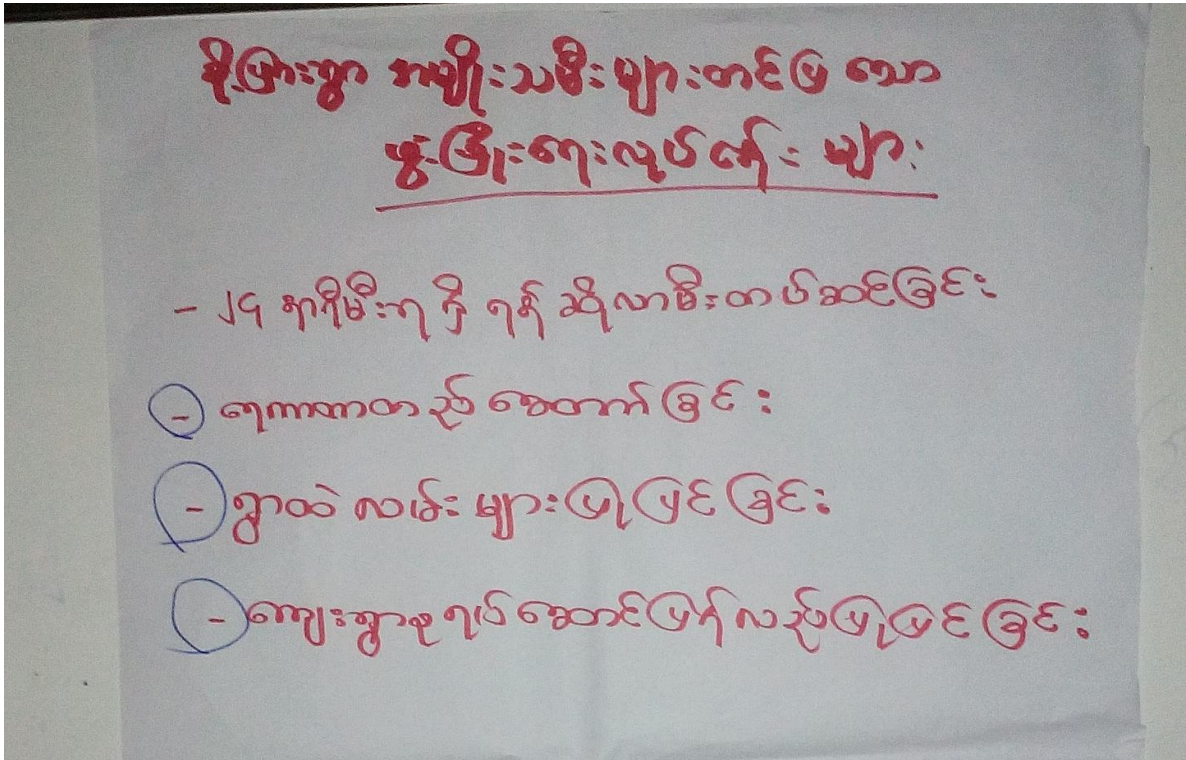 စိုးဖြားရွာ အမျိုးသမီးများတင်ပြ သော
ဖွံ့ဖြိုးရေးလုပ်ငန်း များ
- ၂၄ နာရီမီးရ ရှိ ရန် ဆိုလာမီးတပ်ဆင်ခြင်း
- ရေကာတာတ ည် ဆောက် ခြင်း
- ရွာထဲ လမ်း များ ပြု ပြင် ခြင်း
- ကျေးရွာစု ရပ် ဆောင် ပြန် လည် ပြု ပြင် ခြင်း